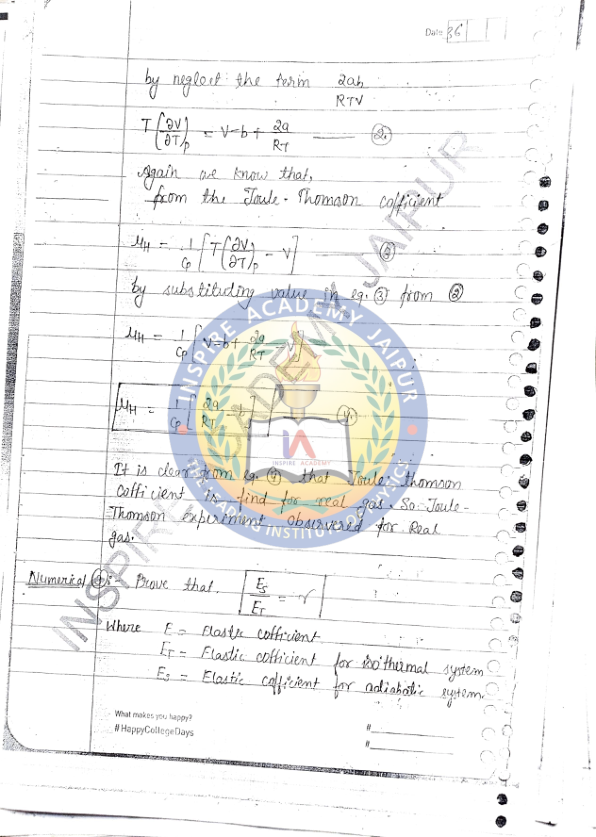 Date 36
by neglect the term 2ab/RTV
T(∂V/∂T)p = V-b+ 2a/RT —— ②
Again we know that,
from the Joule-Thomson cofficient
μH = 1/Cp [T(∂V/∂T)p - V] ③
by substituding value in eq. ③ from ②
μH = 1/Cp [V-b+ 2a/RT - V]
μH = 1/Cp [2a/RT - b]
It is clear from eq. that Joule-thomson
cofficient is find for real gas. So Joule-
Thomson experiment observed for Real
gas.
Numerical Prove that, ES/ET = r
Where E = Elastic cofficient
ET = Elastic cofficient for isothermal system
ES = Elastic cofficient for adiabatic system.
What makes you happy?
#HappyCollegeDays
#
#
INSPIRE ACADEMY JAIPUR
INSPIRE ACADEMY JAIPUR
INSPIRE ACADEMY
THE LEADING INSTITUTE OF PHYSICS